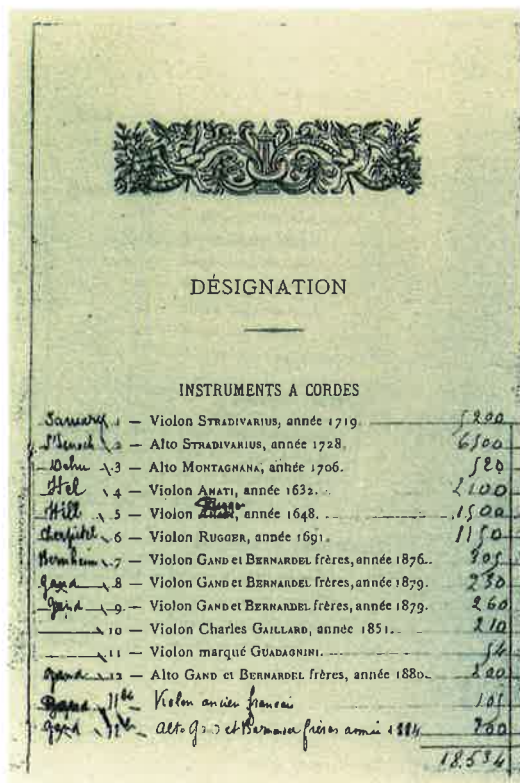 DÉSIGNATION
INSTRUMENTS A CORDES
1 — Violon STRADIVARIUS, année 1719. 5200
2 — Alto STRADIVARIUS, année 1728. 6500
3 — Alto MONTAGNANA, année 1706. 520
Hel 4 — Violon AMATI, année 1632. 2100
Hill 5 — Violon Rugger, année 1648. 1500
Cherpitel 6 — Violon RUGGER, année 1691. 1150
Bernheim 7 — Violon GAND et BERNARDEL frères, année 1876.
Gand 8 — Violon GAND et BERNARDEL frères, année 1879. 230
Gand 9 — Violon GAND et BERNARDEL frères, année 1879. 260
10 — Violon Charles GAILLARD, année 1851. 210
11 — Violon marqué GUADAGNINI.
Gand 12 — Alto GAND et BERNARDEL frères, année 1880.
11 bis Violon ancien francais
Gand Alto Gand et Bernardel frères année
18.534